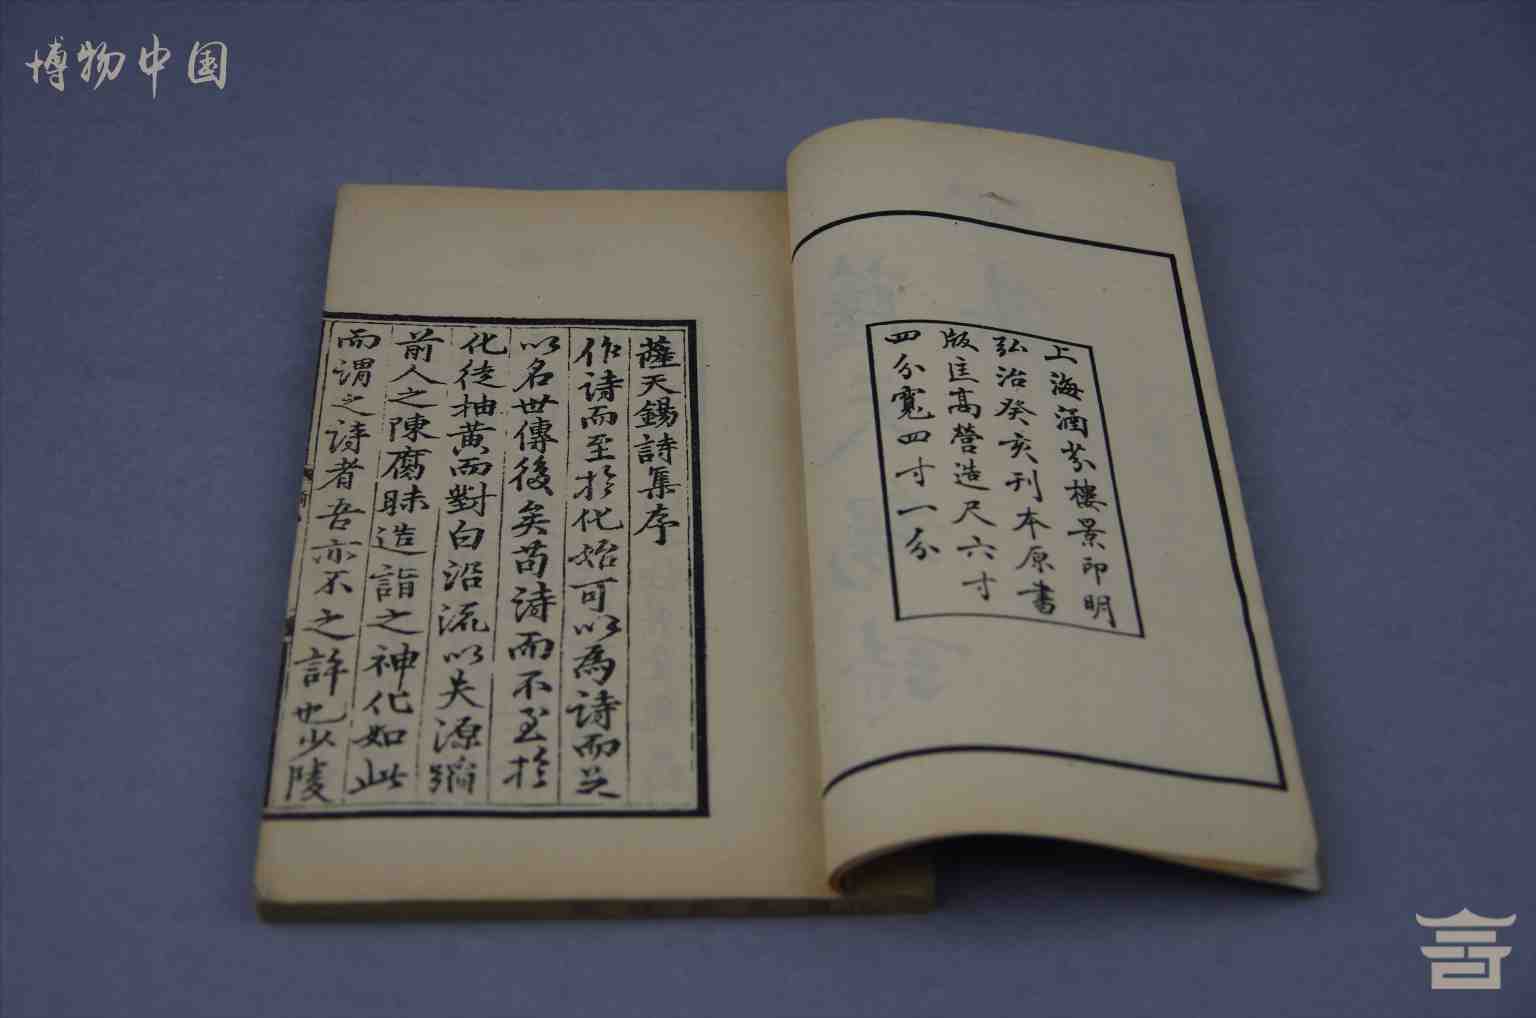 博物中国
上海涵芬樓景印明
弘治癸亥刊本原書
版匡高營造尺六寸
四分寬四寸一分
薩天錫詩集序
作詩而至於化始可以為詩而足
以名世傳後矣苟詩而不至於
化徒抽黃而對白沿流以失源編
前人之陳腐昧造詣之神化如此
而謂之詩者吾亦不之許也少陵